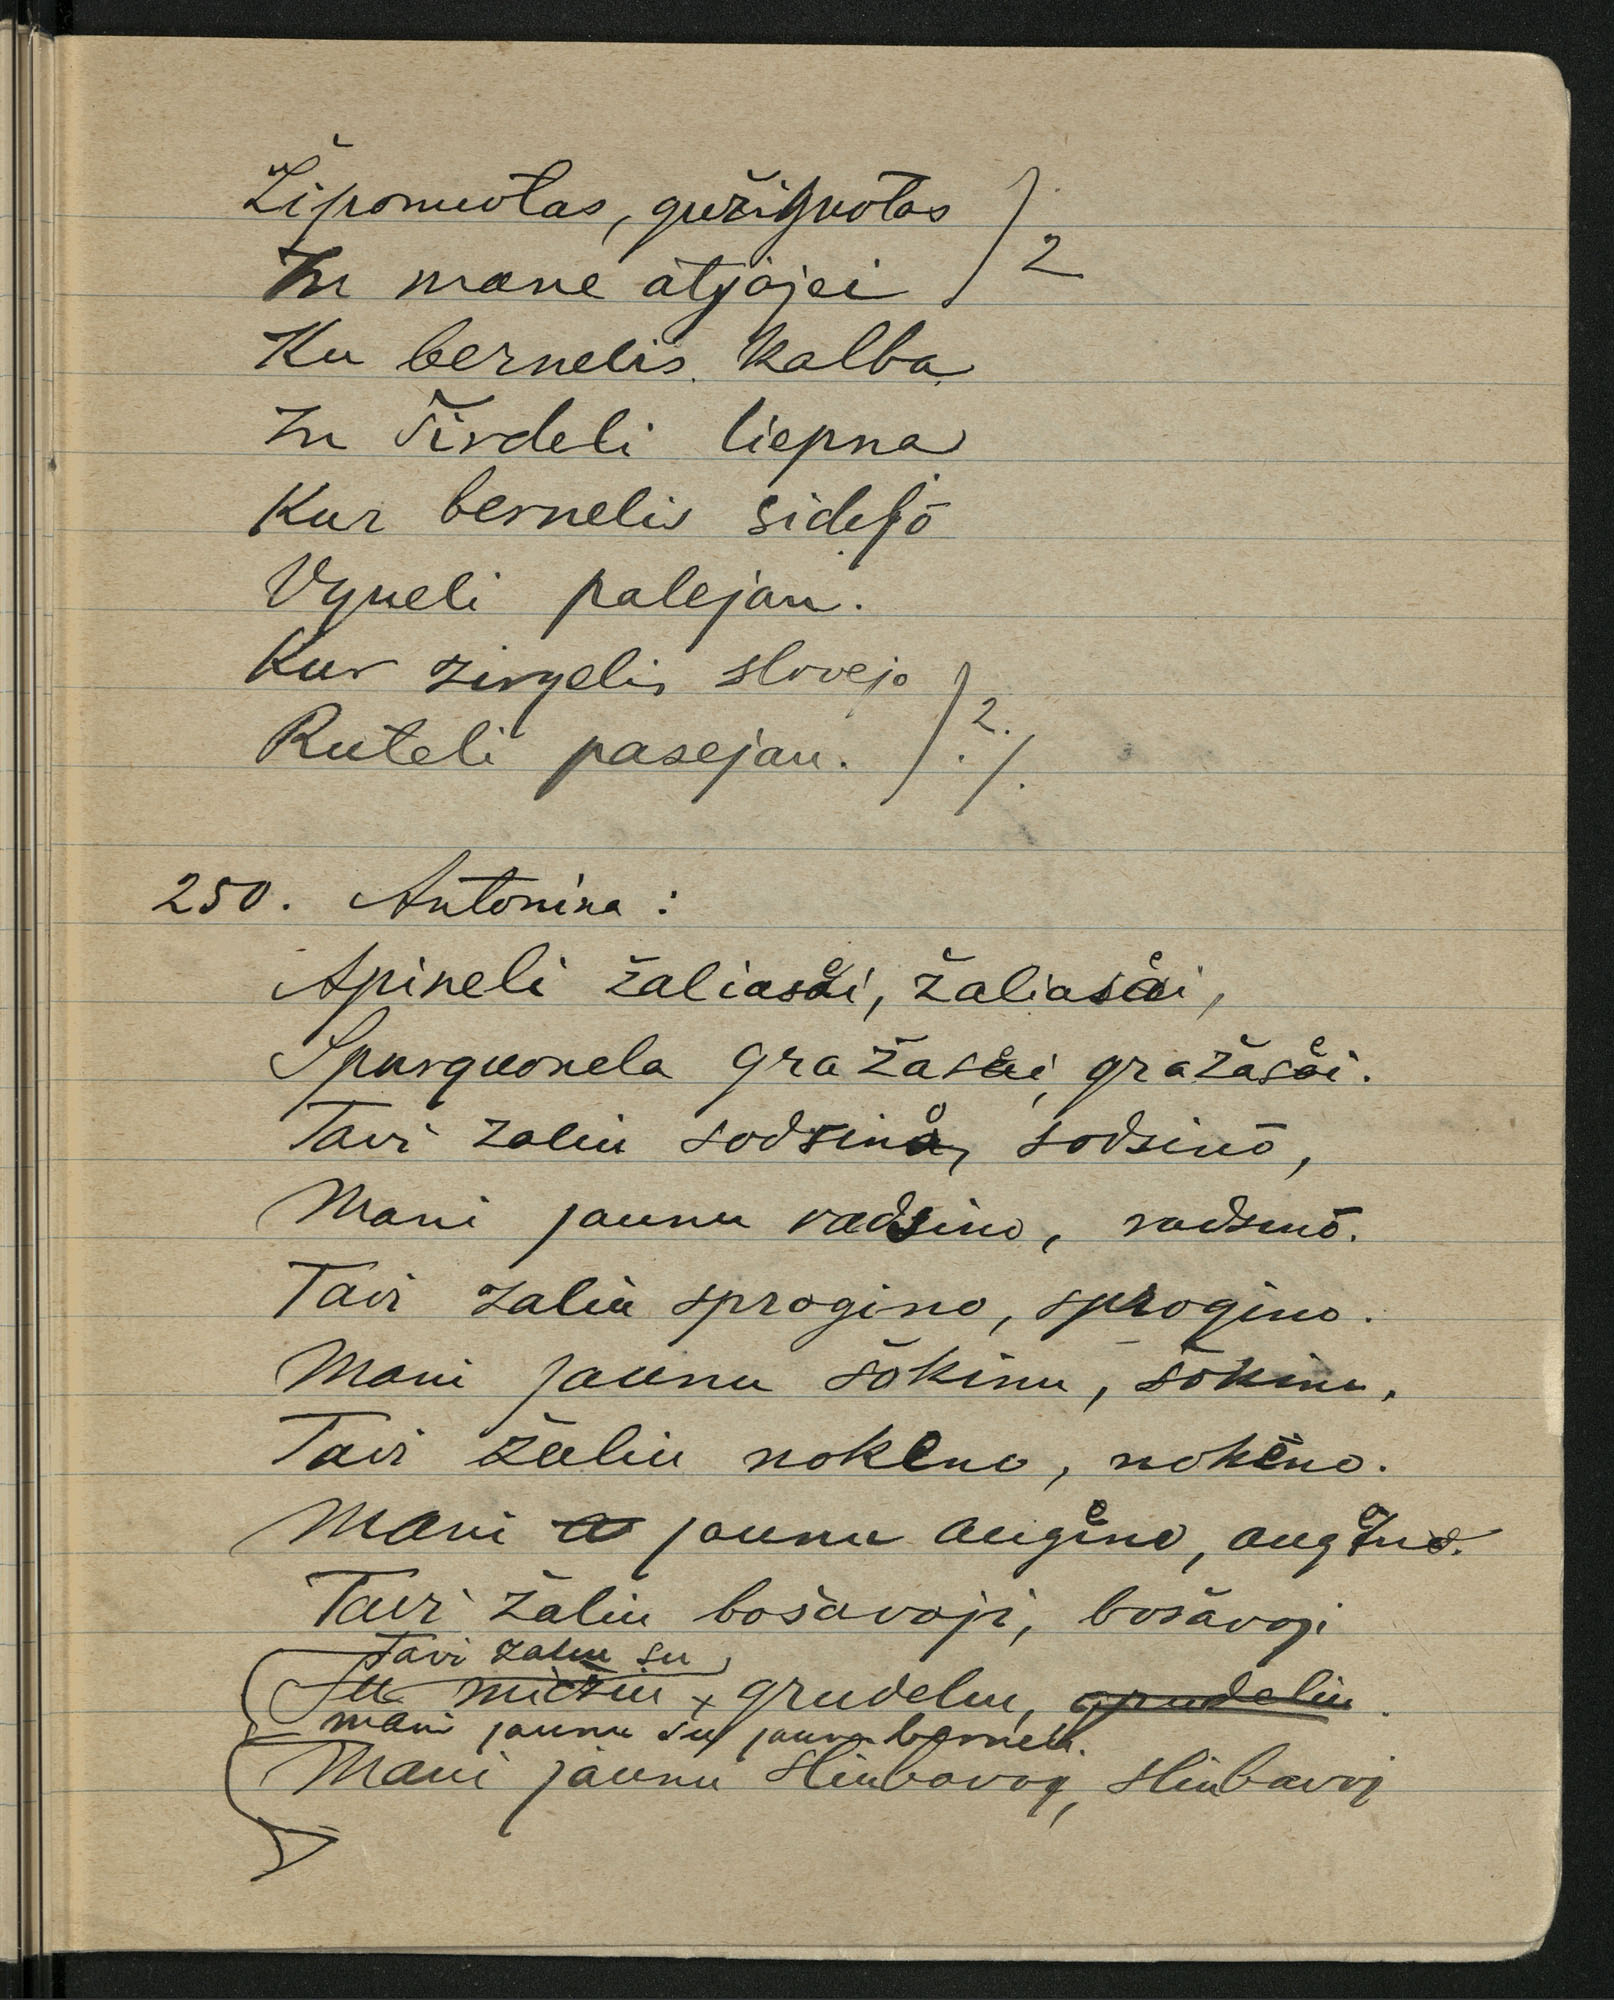 Žiponuotas, gužiguotas } 2
Zu mane atjojei
Ku bernelis kalba
Zu širdeli liepna
Kur bernelis sidejō
Vyneli palejau.
Kur zirgelis stovejo } 2.
Ruteli pasejau. ./.
250. Antonina:
Apineli žaliasēi, žaliasēi,
Spurguonela gražasēi, gražasēi.
Tavi zaliu sodsino, sodsinō,
Mani jaunu radsino, radsinō.
Tavi zaliu sprogino, sprogino.
Mani jaunu šokinu, šokinu,
Tavi žaliu nokeno, nokēno.
Mani jaunu augēno, augēno.
Tavi žaliu bošavoji, bošavoji
Tavi zaliu su
Su miežiu × grudeliu, grudeliu.
mani jaunu su jaunu berneli.
Mani jaunu sliubavoj, sliubavoj